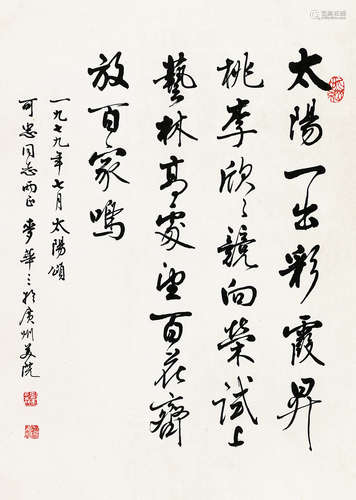 太陽一出彩霞昇
桃李欣〻競向榮試上
藝林高處望百花齊
放百家鳴
一九七九年七月太陽頌
可忠同志正 麥華三於廣州美院